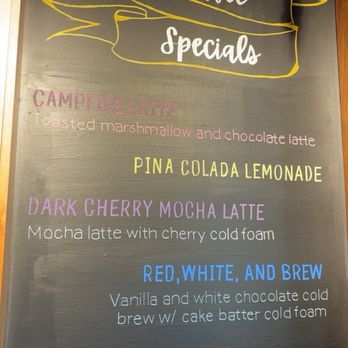 Specials
CAMPFIRE LATTE
Toasted marshmallow and chocolate latte
PINA COLADA LEMONADE
DARK CHERRY MOCHA LATTE
Mocha latte with cherry cold foam
RED, WHITE, AND BREW
Vanilla and white chocolate cold
brew w/ cake batter cold foam